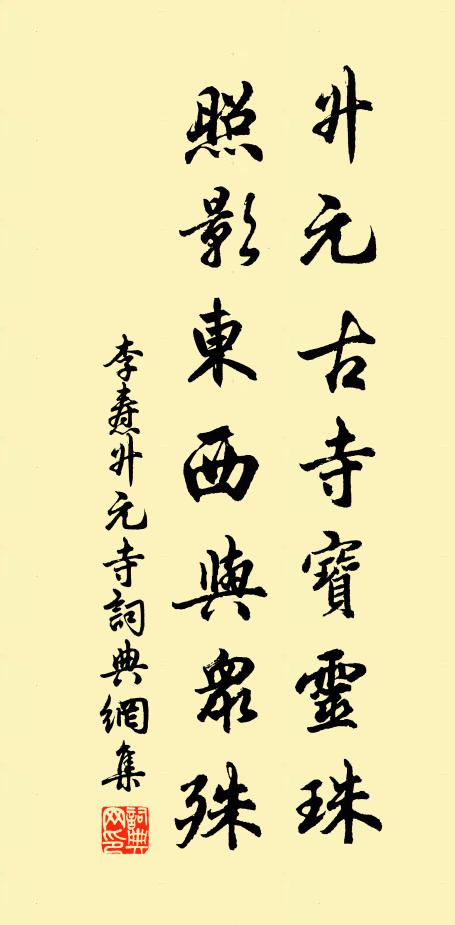 升元古寺寶靈珠
照影東西與衆殊
李燾升元寺詞典網集
詞典
网印